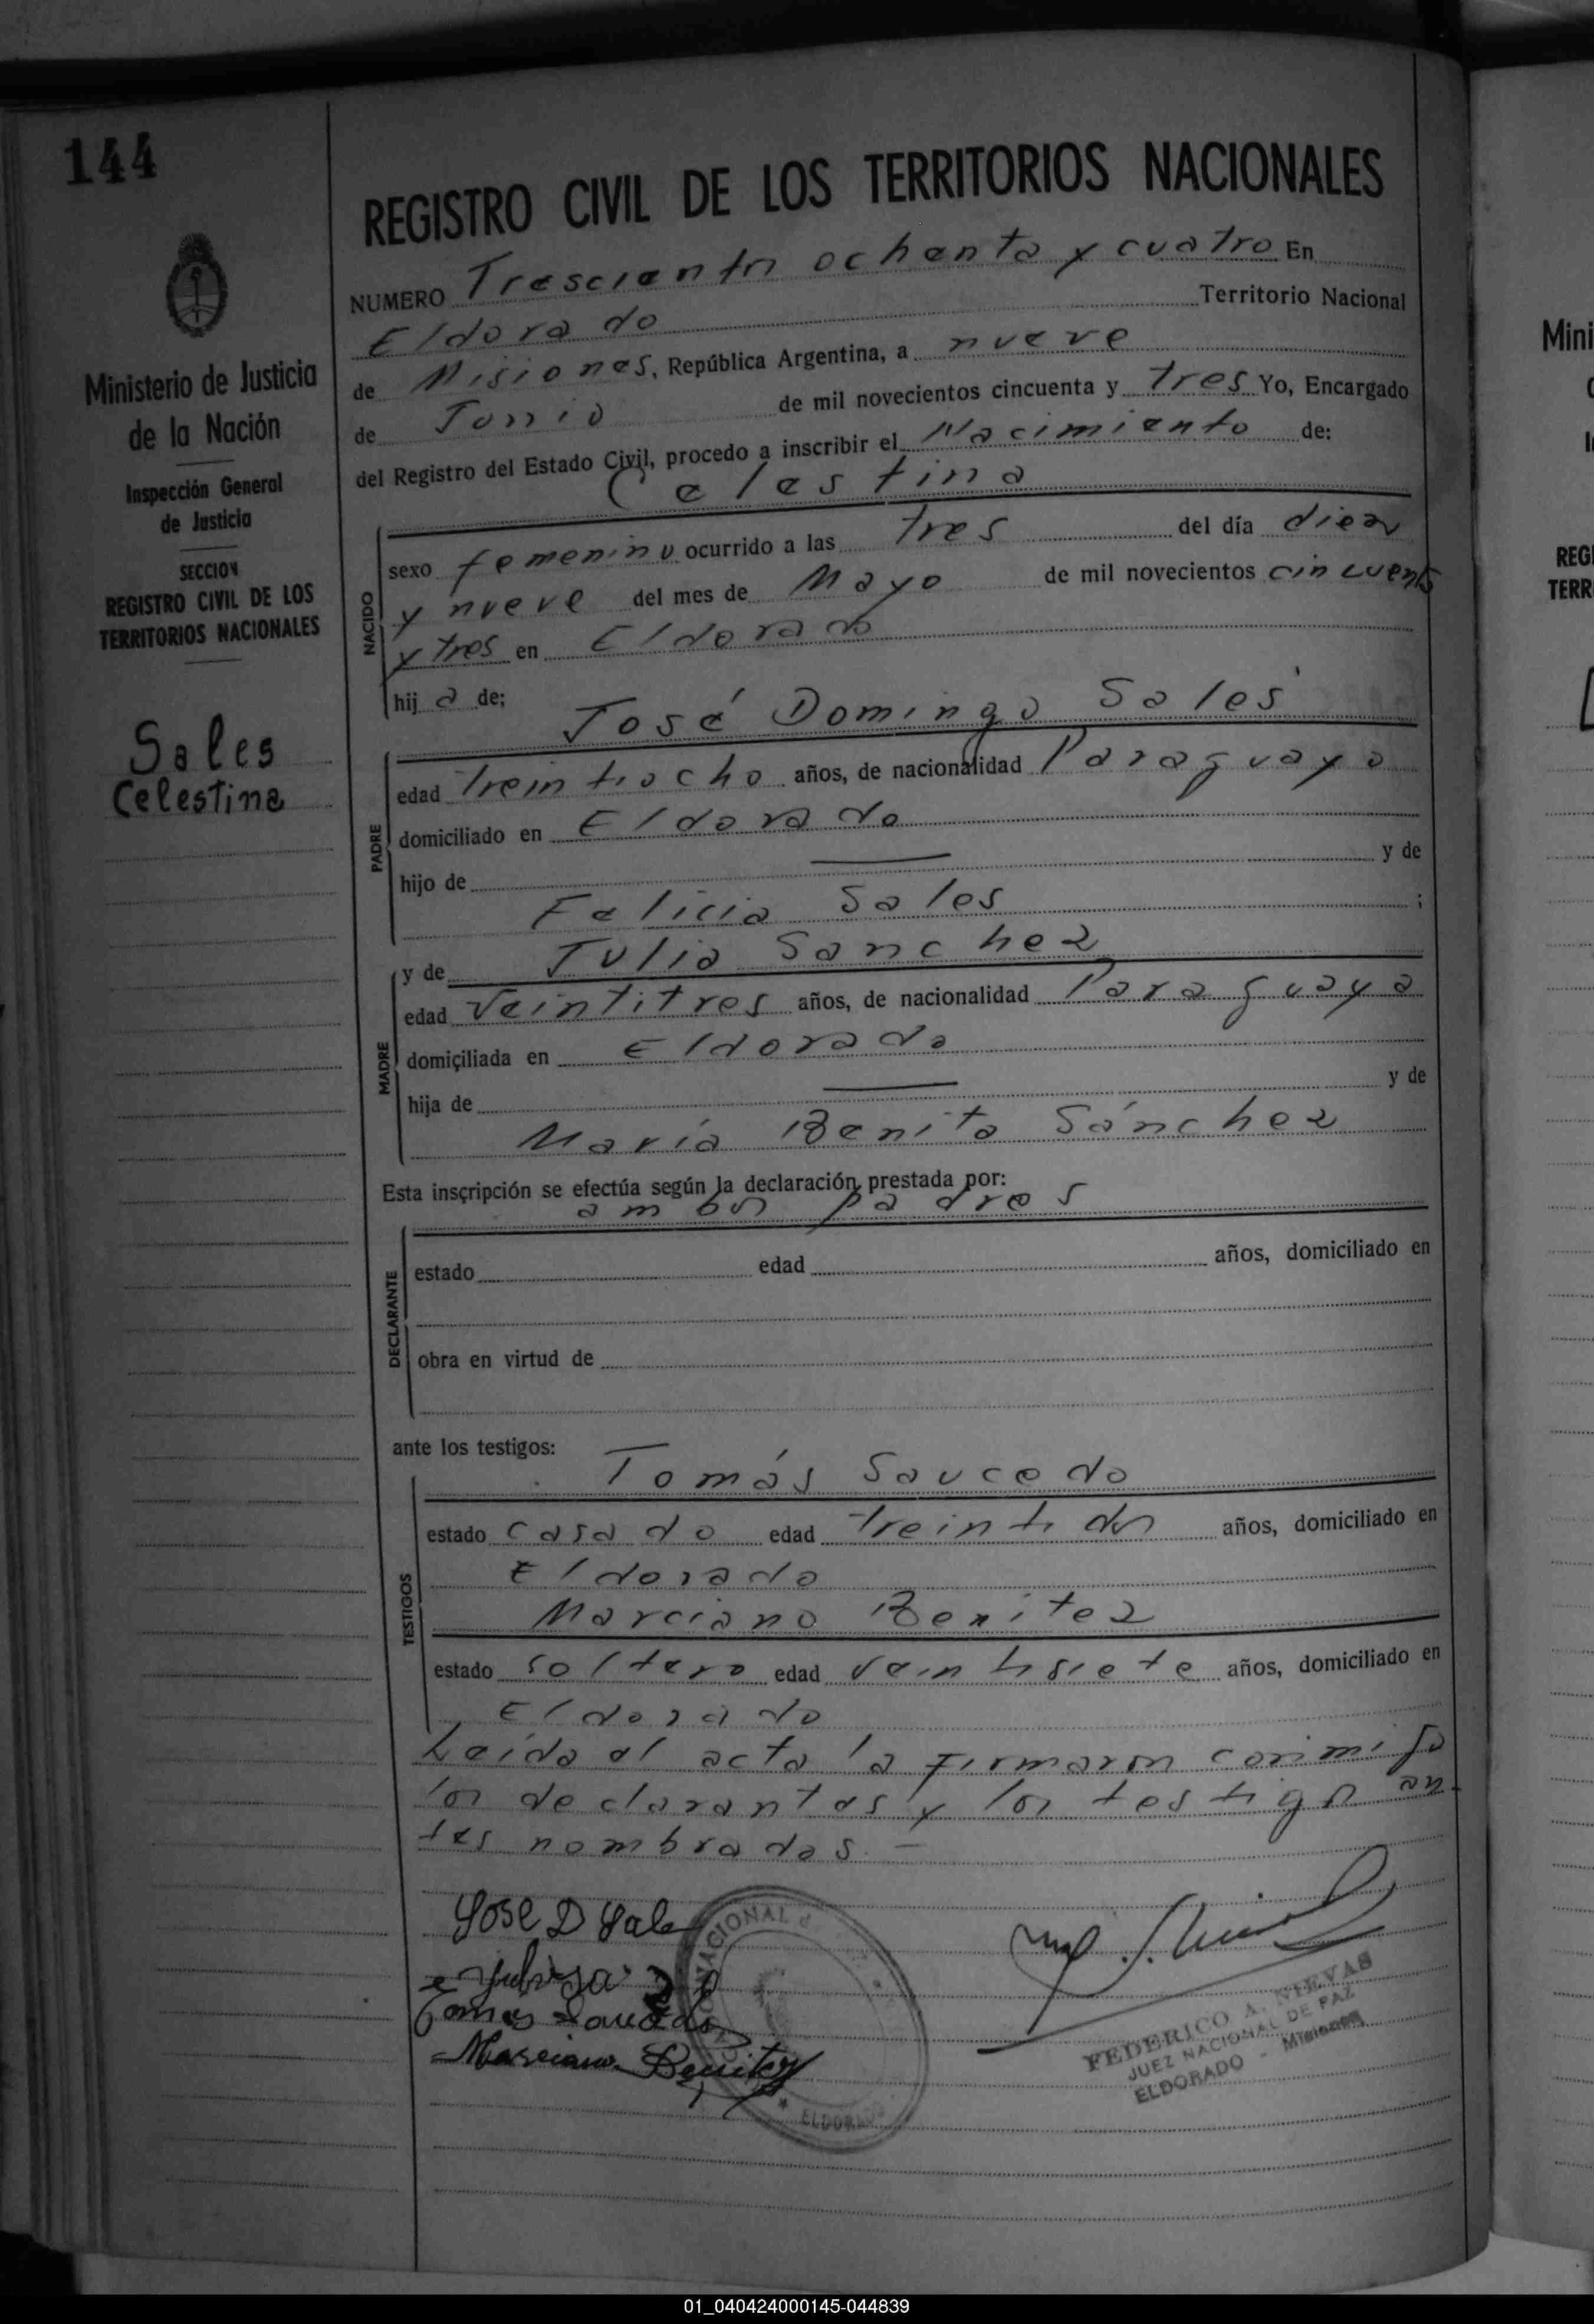 144
REGISTRO CIVIL DE LOS TERRITORIOS NACIONALES
Ministerio de Justicia
de la Nación
Inspección General
de Justicia
SECCION
REGISTRO CIVIL DE LOS
TERRITORIOS NACIONALES
Sales
Celestina
NUMERO Trescientos ochenta y cuatro En
Eldorado Territorio Nacional
de Misiones, República Argentina, a nueve
de Junio de mil novecientos cincuenta y tres Yo, Encargado
del Registro del Estado Civil, procedo a inscribir el Nacimiento de:
Celestina
NACIDO
sexo femenino ocurrido a las tres del día diez
y nueve del mes de Mayo de mil novecientos cincuenta
y tres en Eldorado
hija de;
José Domingo Sales
PADRE
edad treintiocho años, de nacionalidad Paraguaya
domiciliado en Eldorado
hijo de y de
Felicia Sales ;
y de Julia Sanchez
MADRE
edad veintitres años, de nacionalidad Paraguaya
domiciliada en Eldorado
hija de y de
María Benita Sánchez
Esta inscripción se efectúa según la declaración prestada por:
ambos padres
DECLARANTE
estado edad años, domiciliado en
obra en virtud de
ante los testigos:
Tomás Saucedo
TESTIGOS
estado casado edad treintidos años, domiciliado en
Eldorado
Marciano Benitez
estado soltero edad veintisiete años, domiciliado en
Eldorado
Leída el acta la firmaron conmigo
los declarantes y los testigos an-
tes nombrados. -
Jose D Sale
Tomas Saucedo
Marciano Benitez
NACIONAL
ELDORADO
FEDERICO A. NIEVAS
JUEZ NACIONAL DE PAZ
ELDORADO - Misiones
Mini
REGI
TERR
01_040424000145-044839